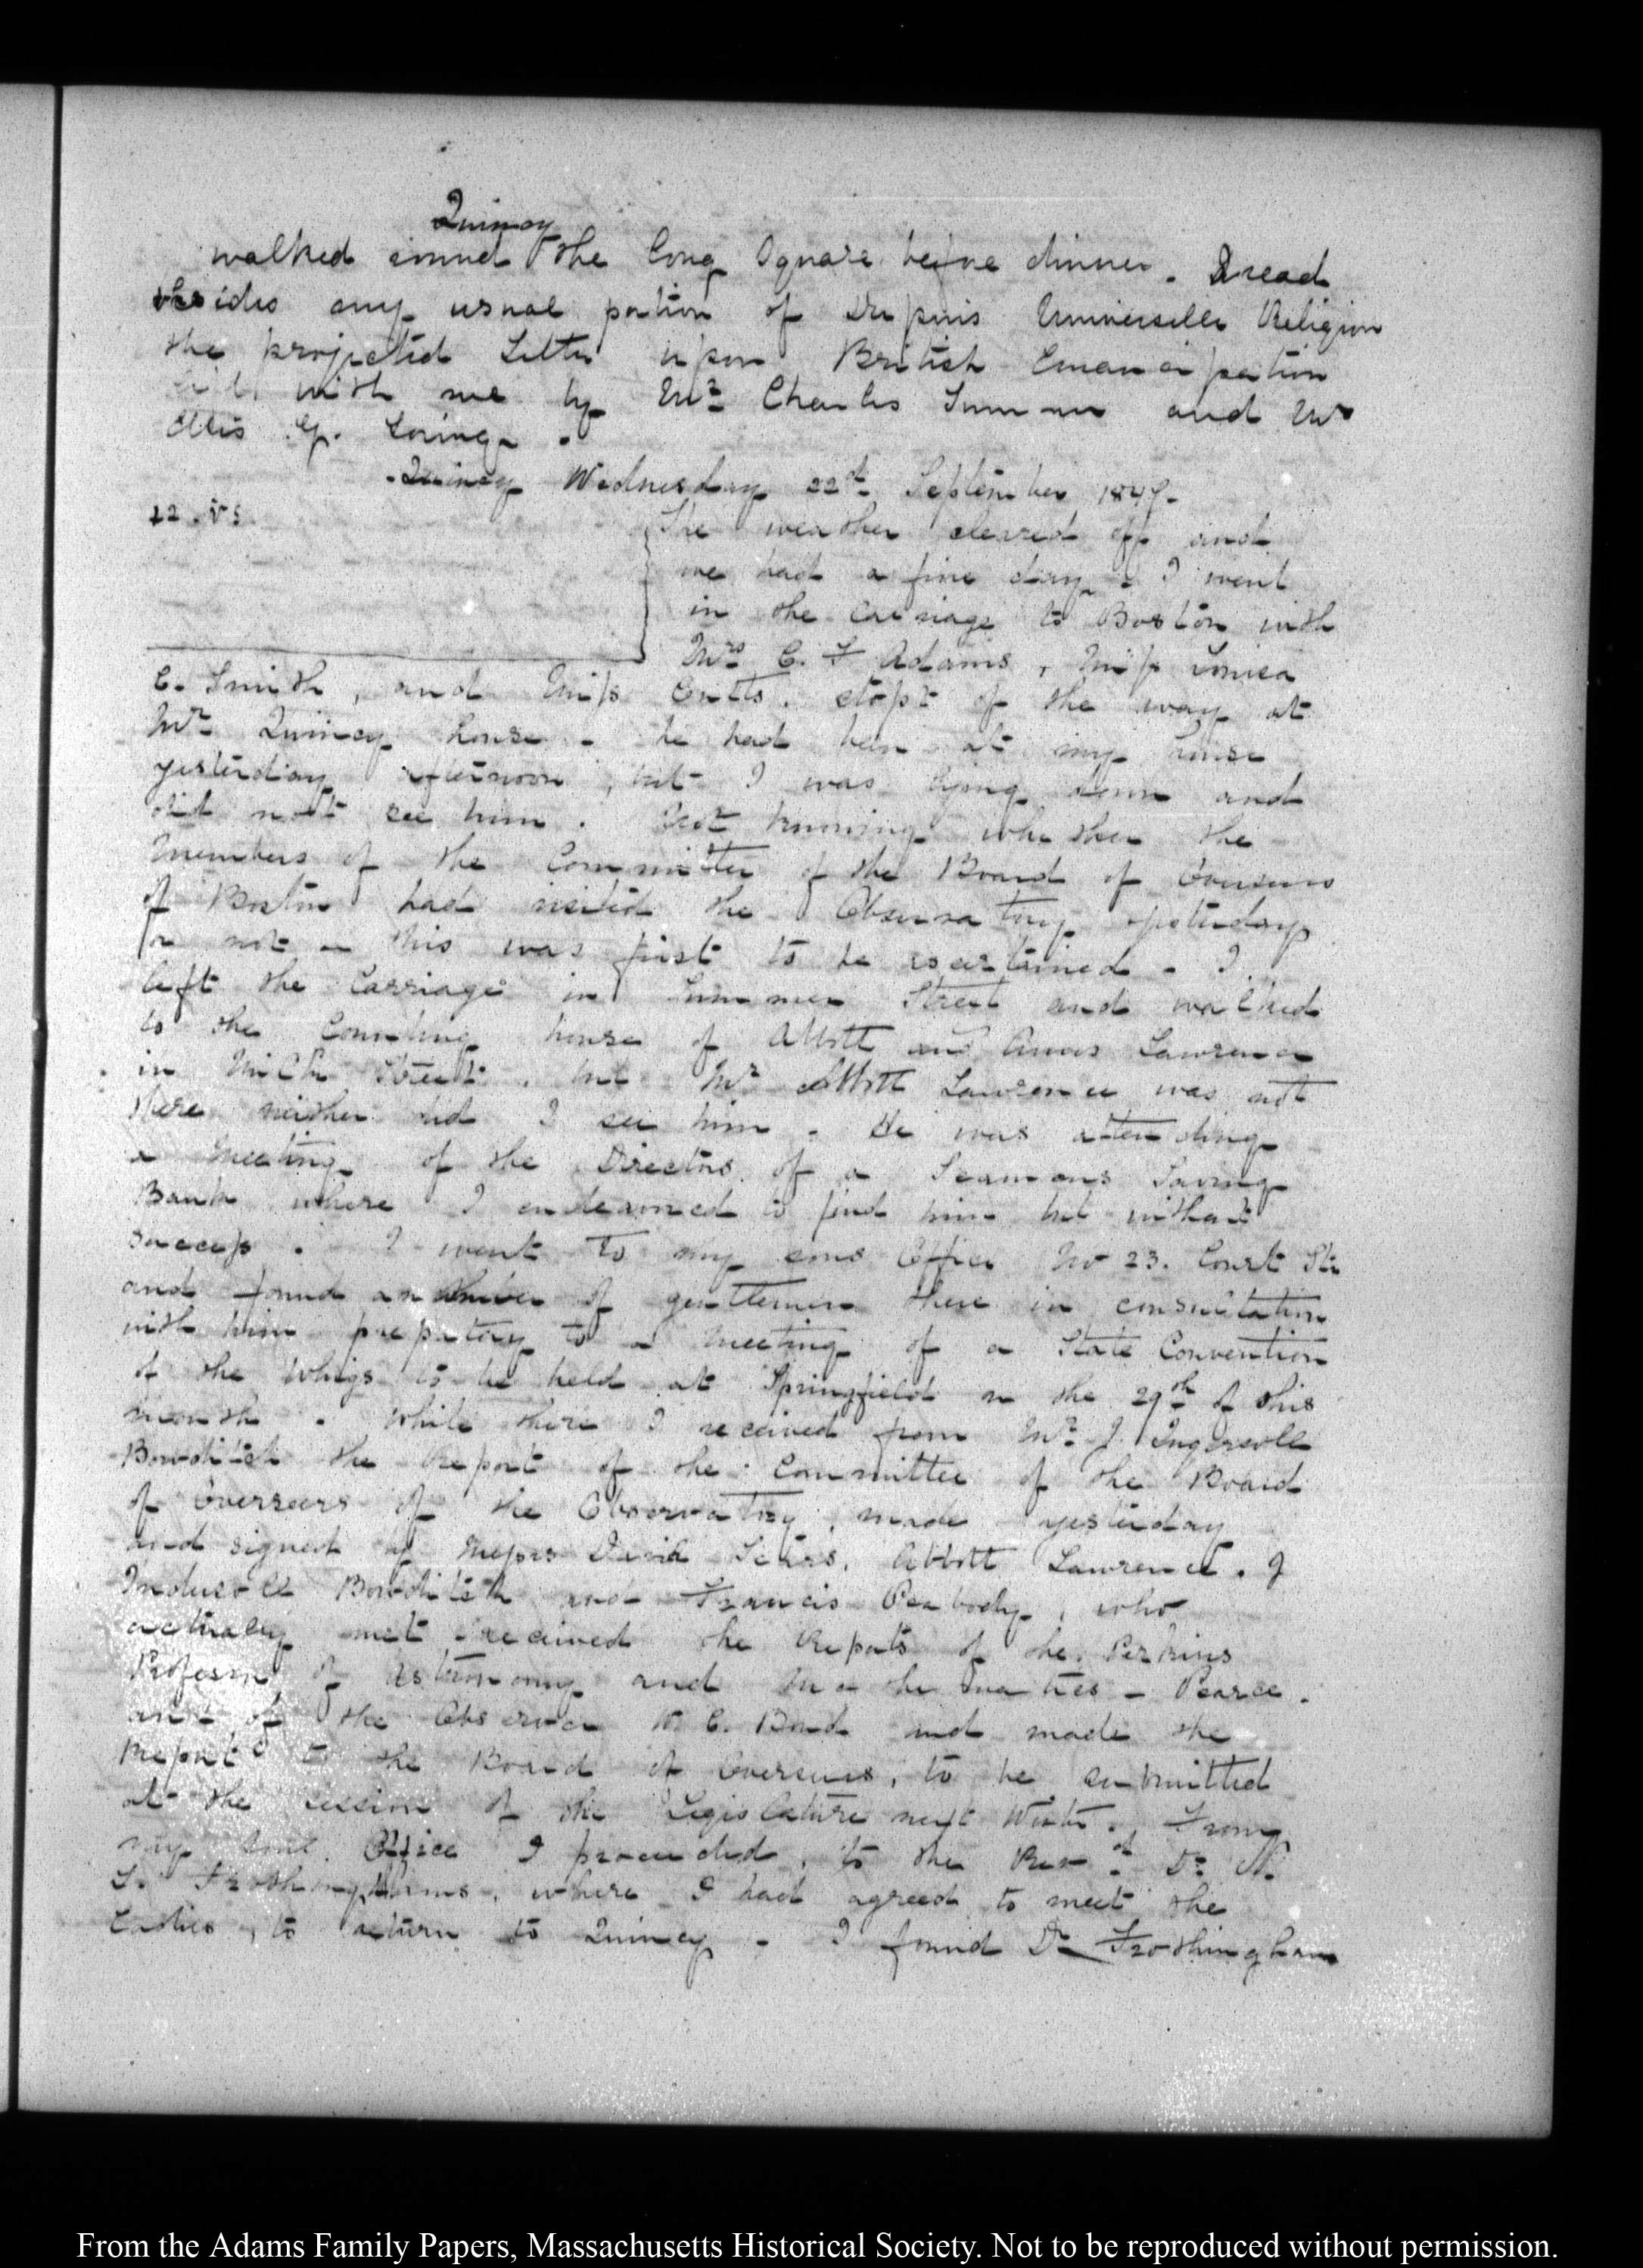 Quincy
walked round the long Square before dinner. I read
besides my usual portion of Dupuis Universelle Religion
the projected Letter upon British Emancipation
left with me by Mr Charles Sumner and Mr
Ellis G. Loring.
Quincy Wednesday 22d September 1847.
12. V S.
The weather cleared off and
we had a fine day. I went
in the carriage to Boston with
Mrs C. F Adams, Miss Louisa
C. Smith, and Miss Cutts. stopt of the way at
Mr Quincy house. he had been at my house
yesterday afternoon, but I was lying down and
did not see him. Not knowing whether the
members of the Committee of the Board of Overseers
of Boston had visited the Observatory yesterday
or not - this was first to be ascertained - I
left the Carriage in Summer Street and walked
to the Counting house of Abbott and Amos Lawrence
in Milk Street. but Mr Abbott Lawrence was not
there neither did I see him. He was attending
a meeting of the Directors of a Seamans Saving
Bank where I endeavoured to find him but without
success. I went to my sons Office No 23. Court Str
and found a number of gentlemen there in consultation
with him prepatory to a meeting of a State Convention
of the Whigs to be held at Springfield on the 29th of this
month. While there I received from Mr J. Ingersoll
Bowditch the Report of the Committee of the Board
of Overseers of the Observatory, made yesterday
and signed by Messrs David Sears, Abbott Lawrence. J
Indersoll Bowditch and Francis Peabody, who
actually met received the Reports of the Perkins
Professor of Astronomy and Mathematics - Pearce.
and of the Observer W. C. Bond and made the
Report to the Board of Overseers, to be submitted
at the session of the Legislature next Winter. From
my sons Office I proceeded, to the Revd Dr N.
L. Frothinghams, where I had agreed to meet the
Ladies, to return to Quincy - I found Dr Frothingham
From the Adams Family Papers, Massachusetts Historical Society. Not to be reproduced without permission.